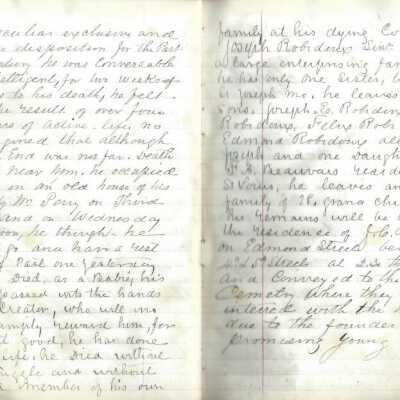 eculiar exclusive and
disposition for the Past
he was Conversable
intelligent, for two weeks
to his death, he felt
the result of over four
of active life, no
gined that although
End was not far. Death
near him. he occupied
in an old house of his
by Mr Pory on Third
and on Wednesday
noon, he thought he
go and have a rest
Past one yesterday
Died, as a Babie, his
passed into the hands
Creator, who will no
amply reward him, for
good, he has done
life. he Died without
struggle and without
a member of his own
family at his dying Co
Joseph Robidoux
a large enterprising fam
he has only one Sister, l
in St Joseph Mo. he leaves
sons. Joseph E. Robidou
Robidoux, Felix Rob
Edmond Robidoux all
Joseph and one Daugh
Beauvais resid
St Louis, he leaves an
family of grand chi
his remains will be
the residence of
on Edmond Street be
Streets at
and Conveyed to the
Cemetry Where they
intered with the h
due to the founder
promising young